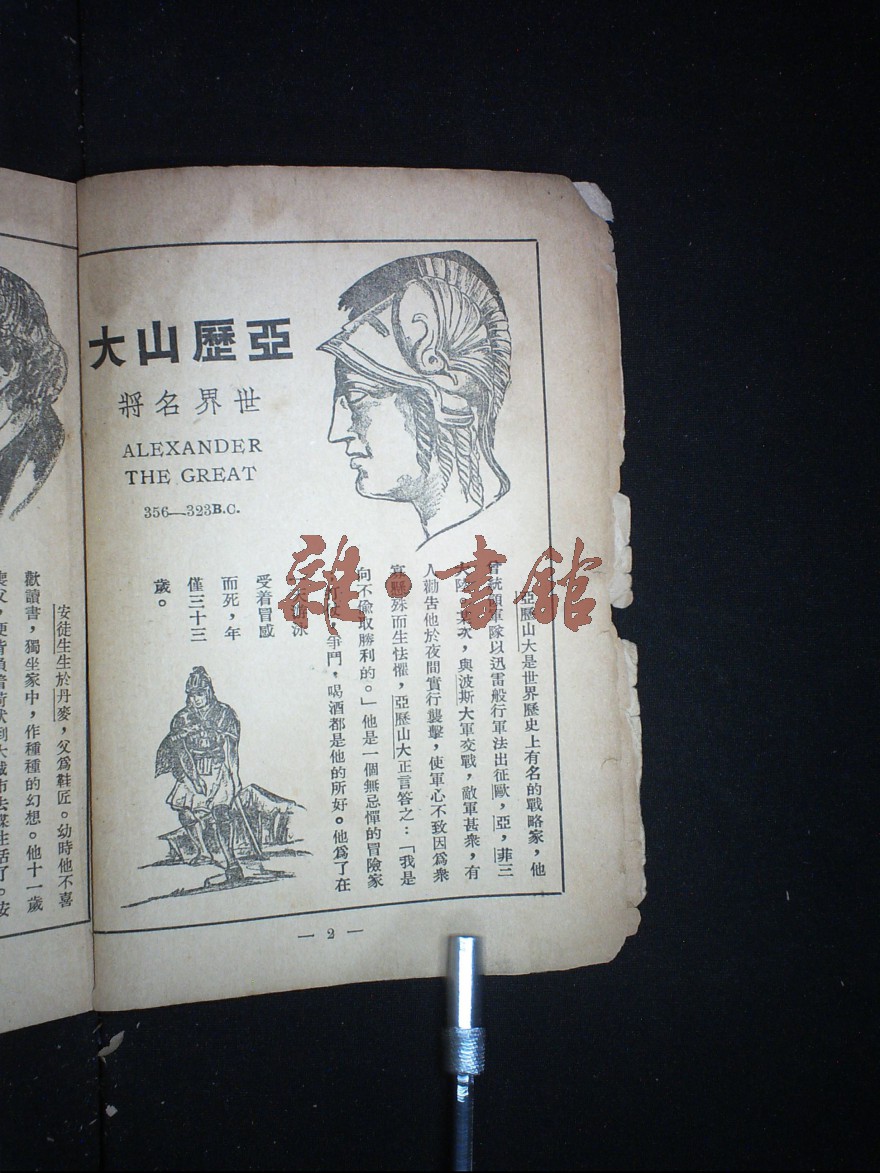 亞歷山大
世界名將
ALEXANDER
THE GREAT
356—323B.C.
亞歷山大是世界歷史上有名的戰略家，他
曾統領軍隊以迅雷般行軍法出征歐，亞，菲三
大陸。某次，與波斯大軍交戰，敵軍甚衆，有
人勸告他於夜間實行襲擊，使軍心不致因爲衆
寡懸殊而生怯懼，亞歷山大正言答之：「我是
向不偷取勝利的。」他是一個無忌憚的冒險家
，爭鬥，喝酒都是他的所好。他爲了在
泳
受着冒感
而死，年
僅三十三
歲。
— 2 —
安徒生生於丹麥，父爲鞋匠。幼時他不喜
歡讀書，獨坐家中，作種種的幻想。他十一歲
大城市去謀生活了。安
雜·書館